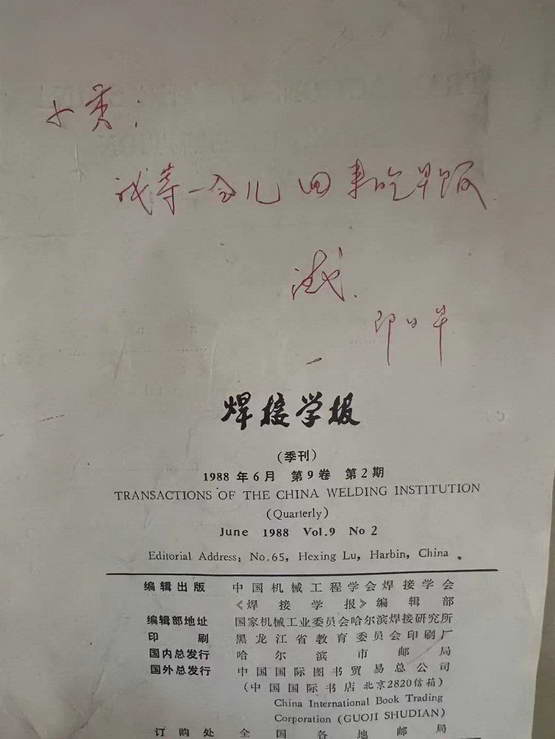 小黄:
我等一会儿回来吃早饭.
即日早
焊接学报
(季刊)
1988 年 6 月 第 9 卷 第 2 期
TRANSACTIONS OF THE CHINA WELDING INSTITUTION
(Quarterly)
June 1988 Vol.9 No 2
Editorial Address: No.65, Hexing Lu, Harbin, China.
编辑出版 中国机械工程学会焊接学会
《焊接学报》编辑部
编辑部地址 国家机械工业委员会哈尔滨焊接研究所
印刷 黑龙江省教育委员会印刷厂
国内总发行 哈尔滨市邮局
国外总发行 中国国际图书贸易总公司
(中国国际书店 北京2820信箱)
China International Book Trading
Corporation (GUOJI SHUDIAN)
订购处 全国各地邮局